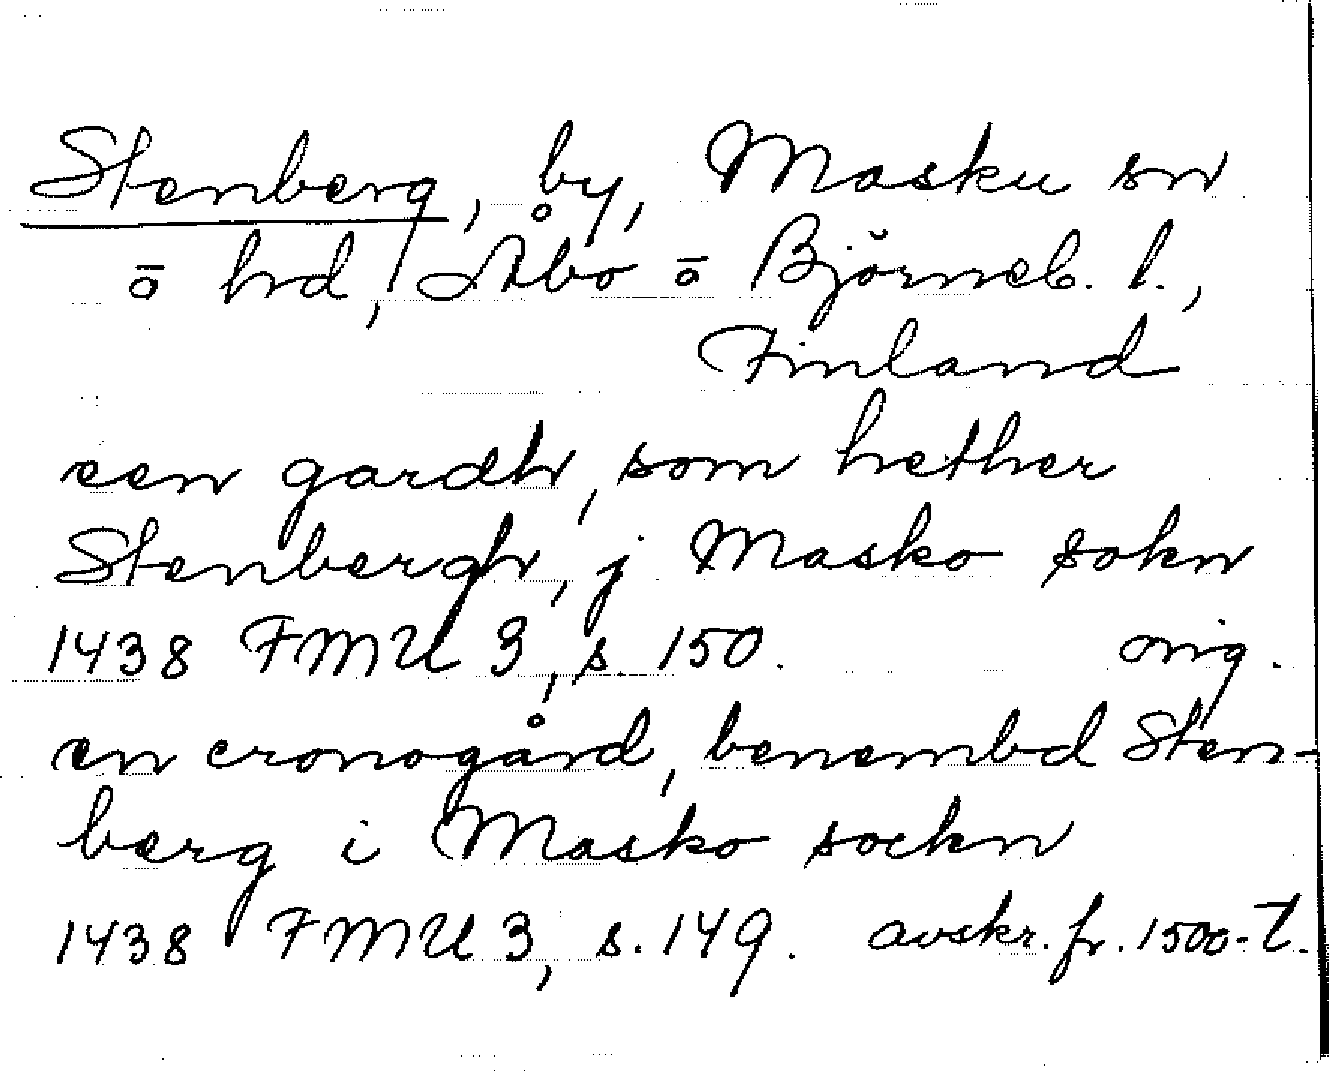 Stenberg, by, Masku sn
o hd, Åbo o Björneb. l.,
Finland
een gardh, som hether
Stenbergh, j Masko sokn
1438 FMU 3, s. 150. orig.
en cronogård, benembd Sten-
berg i Masko sockn
1438 FMU 3, s. 149. avskr. fr. 1500-t.